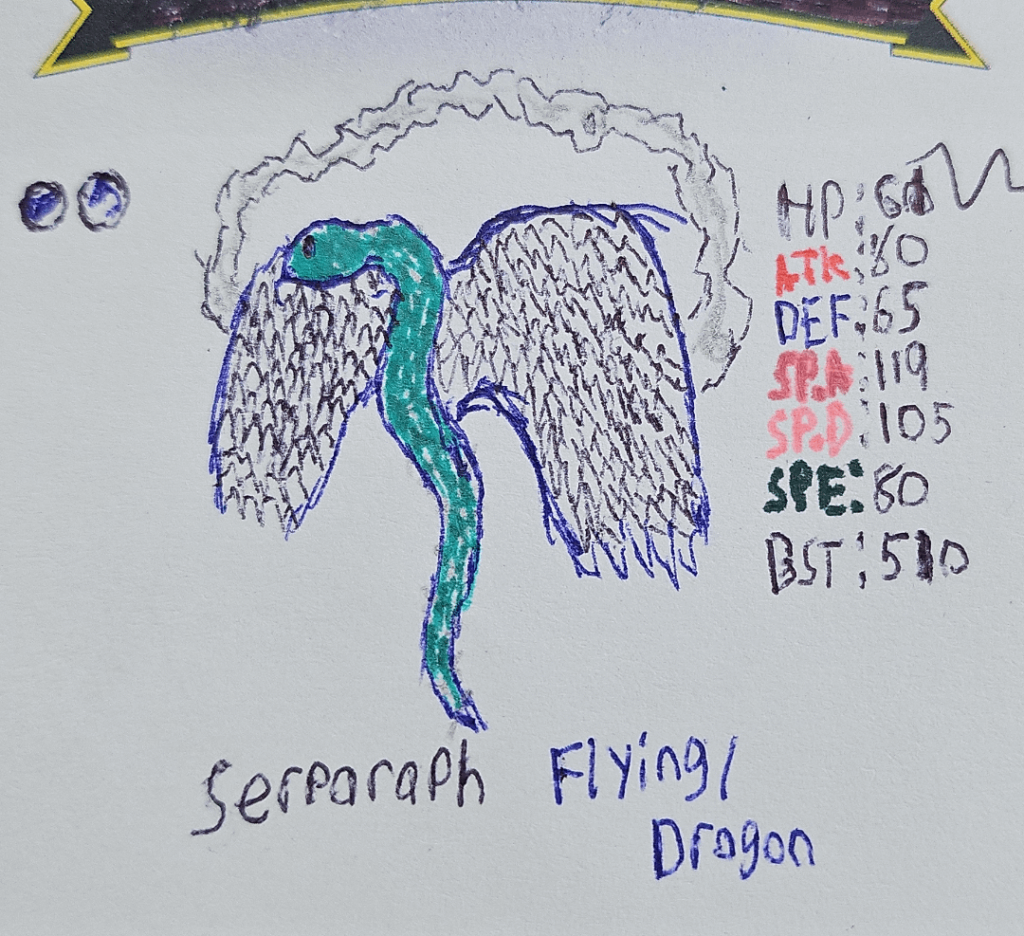 HP:61
ATK:80
DEF:65
SP.A:119
SP.D:105
SPE:80
BST:510
Serparaph
Flying/
Dragon